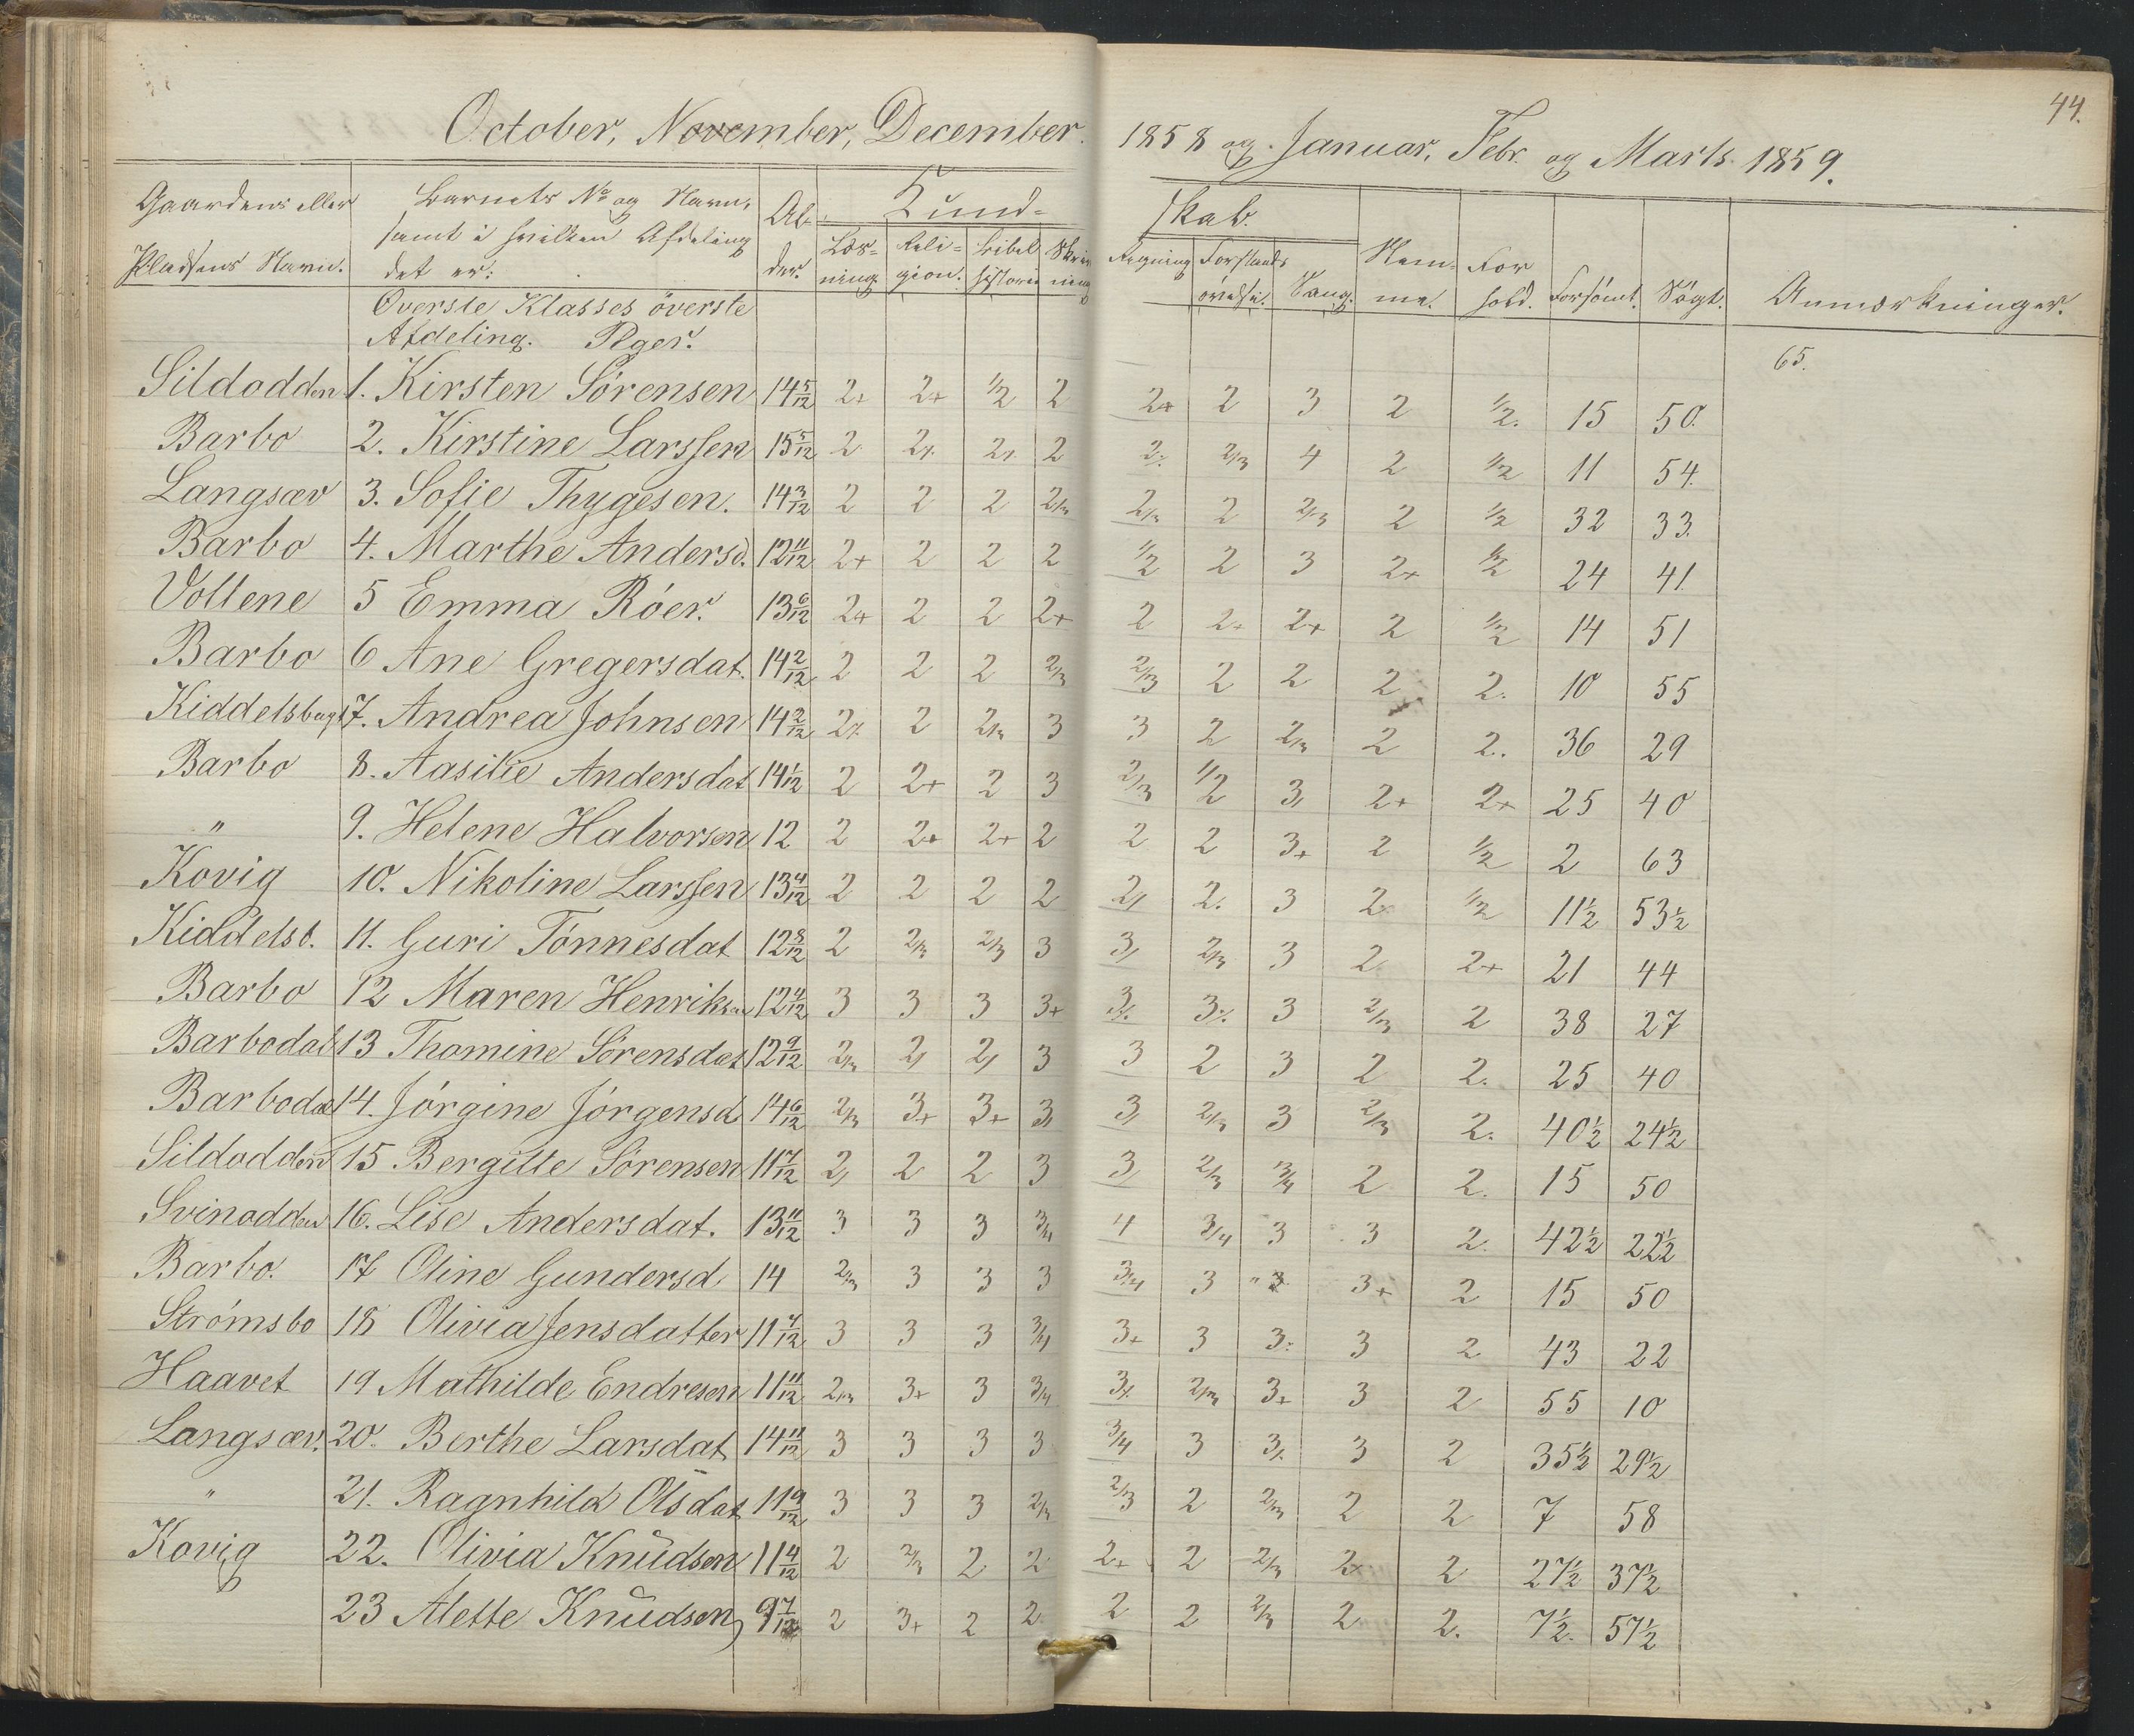 44.
October, November, December 1858 og Januar, Febr. og Marts 1859.
Gaardens eller Pladsens Navn. Barnets No og Navn, samt i hvilken Afdeling det er: Alder. Kundskab. Læsning. Religion. Bibelhistorie Skrivning Regning Forstandsövelse. Sang. Nemme. Forhold. Forsömt. Sögt. Anmærkninger.
Överste Klasses överste
Afdeling. Piger. 65.
Sildodden 1. Kirsten Sörensen 14 5/12 2+ 2+ 1/2 2 2+ 2 3 2 1/2. 15 50.
Barbo 2. Kirstine Larssen 15 5/12 2 2 2 2 2/3 4 2 1/2 11 54.
Langsæv 3. Sofie Thygesen. 14 3/12 2 2 2 2/3 2/3 2 2/3 2 1/2 32 33.
Barbo 4. Marthe Andersd. 12 11/12 2+ 2 2 2 1/2 2 3 2+ 1/2 24 41.
Vollene 5 Emma Röer. 13 6/12 2+ 2 2 2+ 2 2+ 2+ 2 1/2 14 51
Barbo 6 Ane Gregersdat. 14 2/12 2 2 2 2/3 2/3 2 2 2 2. 10 55
Kiddelsbugt 7. Andrea Johnsen 14 2/12 2 2/3 3 3 2 2/3 2 2. 36 29
Barbo 8. Aasilie Andersdat 14 1/12 2 2+ 2 3 2/3 1/2 3 2+ 2+ 25 40
" 9. Helene Halvorsen 12 2 2+ 2+ 2 2 2 3+ 2 1/2 2 63
Kovig 10. Nikoline Larssen 13 4/12 2 2 2 2 2 2. 3 2 1/2 11 1/2 53 1/2
Kiddelsb. 11. Guri Tönnesdat 12 8/12 2 2/3 2/3 3 3 2/3 3 2 2+ 21 44
Barbo 12 Maren Henriksen 12 4/12 3 3 3 3+ 3 2/3 2 38 27
Barbodal 13 Thomine Sörensdat 12 9/12 2/3 2 2 3 3 2 3 2 2. 25 40
Barbodal 14. Jörgine Jörgensd 14 6/12 2/3 3+ 3+ 3 3 2/3 3 2/3 2. 40 1/2 24 1/2
Sildodden 15 Bergitte Sörensen 11 7/12 2 2 2 3 3 2/3 3/4 2 2. 15 50
Svinodden 16. Lise Andersdat. 13 11/12 3 3 3 3/4 4 3/4 3 3 2. 42 1/2 22 1/2
Barbo. 17 Oline Gundersd 14 2/3 3 3 3 3/4 3 " 3 3+ 2 15 50
Strömsbo 18 Olivia Jensdatter 11 7/12 3 3 3 3/4 3+ 3 3 3 2 43 22
Haavet 19 Mathilde Endresen 11 11/12 2/3 3+ 3 3/4 2/3 3+ 3 2 55 10
Langsæv. 20. Berthe Larsdat 14 11/12 3 3 3 3 3/4 3 3 2 35 1/2 29 1/2
" 21. Ragnhild Olsdat 11 9/12 3 3 3 2/3 2/3 2 2/3 2 2 7 58
Kovig 22. Olivia Knudsen 11 4/12 2 2/3 2 2 2+ 2 2/3 2+ 2 27 1/2 37 1/2
23 Alette Knudsen 9 7/12 2 3+ 2 2 2 2 2/3 2 2. 7 1/2. 57 1/2